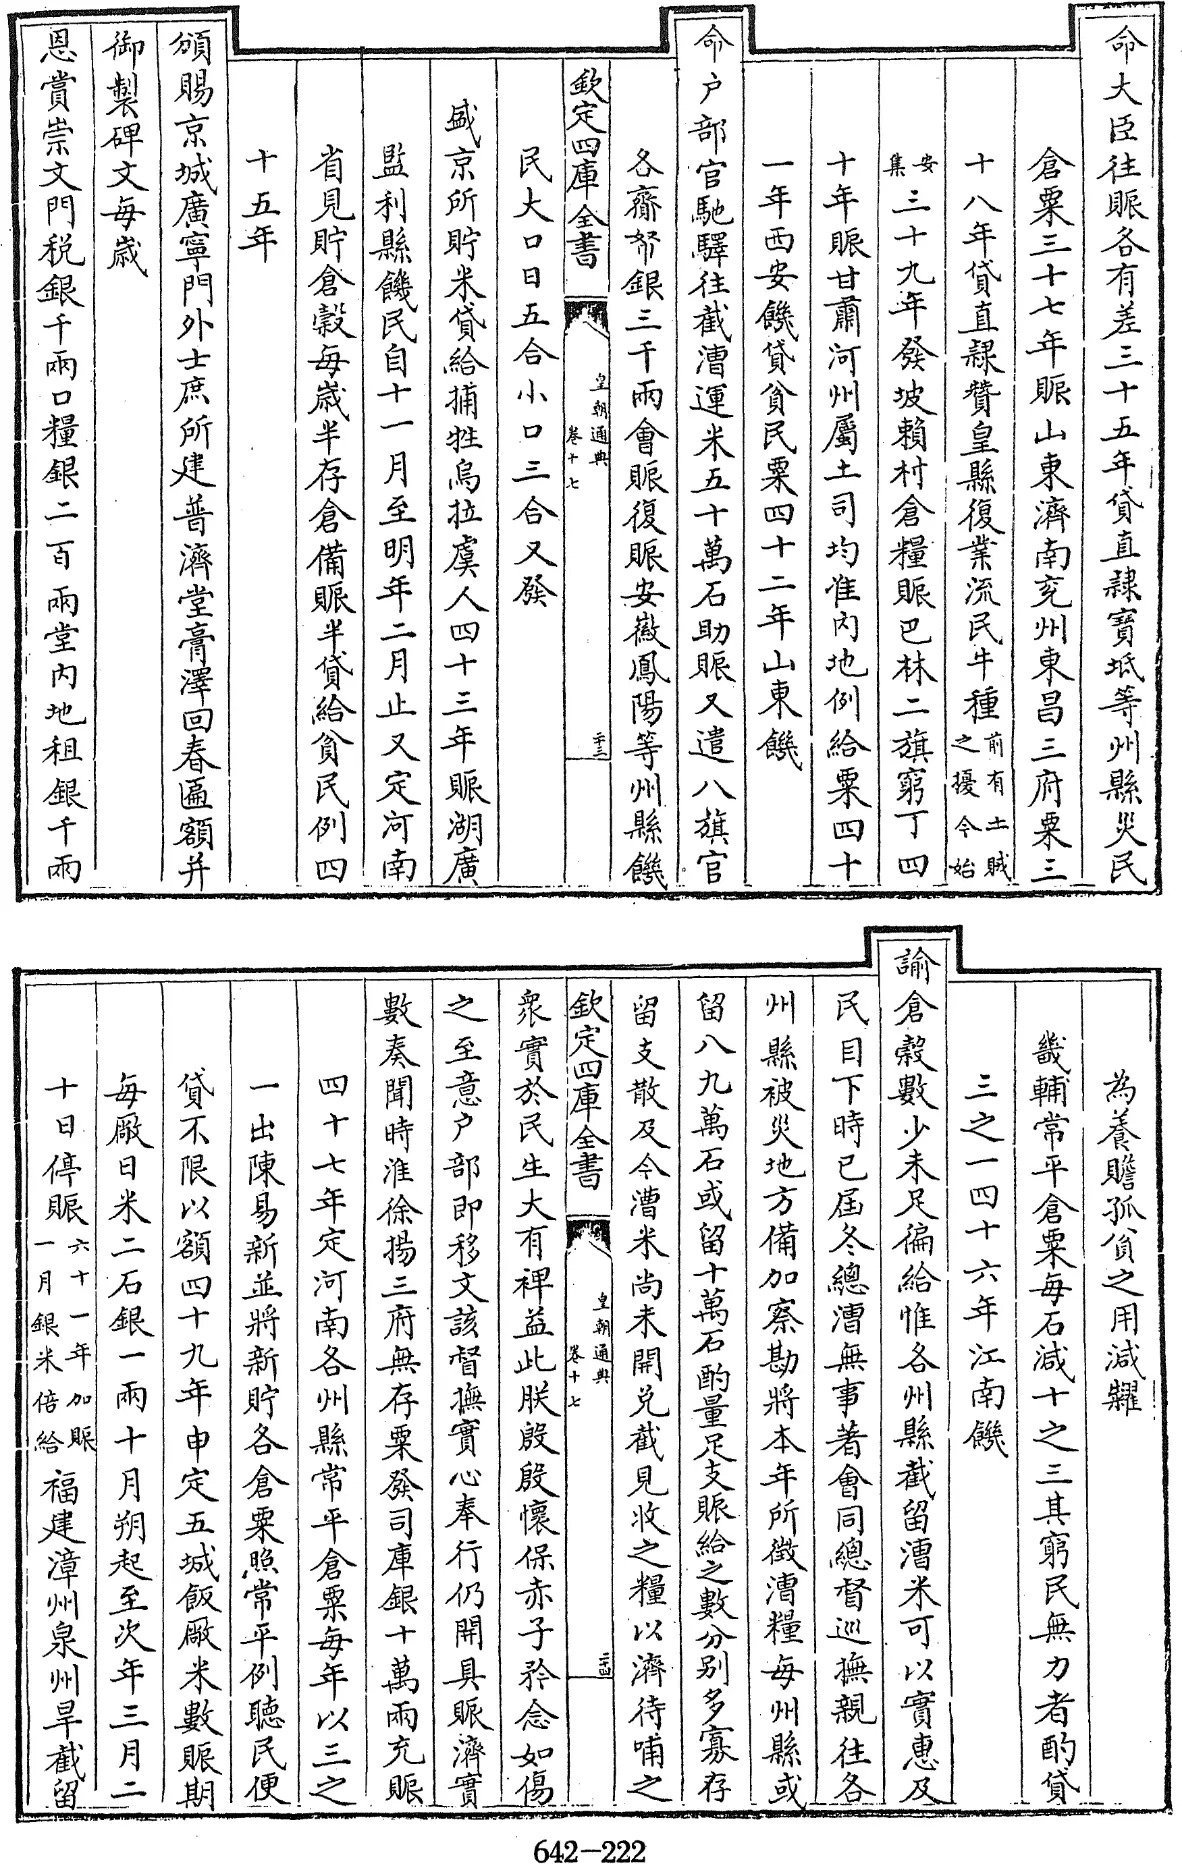 命大臣往賑各有差三十五年貸直隸寶坻等州縣災民
倉粟三十七年賑山東濟南兖州東昌三府粟三
十八年貸直隸贊皇縣復業流民牛種前有土賊之擾今始
安集三十九年發坡賴村倉糧賑巴林二旗窮丁四
十年賑甘肅河州屬土司均准內地例給粟四十
一年西安饑貸貧民粟四十二年山東饑
命户部官馳驛往截漕運米五十萬石助賑又遣八旗官
各齎帑銀三千兩會賑復賑安徽鳳陽等州縣饑
欽定四庫全書
皇朝通典
卷十七
二十三
民大口日五合小口三合又發
盛京所貯米貸給捕牲烏拉虞人四十三年賑湖廣
監利縣饑民自十一月至明年二月止又定河南
省見貯倉穀每歲半存倉備賑半貸給貧民例四
十五年
頒賜京城廣寧門外士庶所建普濟堂膏澤回春匾額并
御製碑文每歲
恩賞崇文門稅銀千兩口糧銀二百兩堂內地租銀千兩
為養贍孤貧之用減糶
畿輔常平倉粟每石減十之三其窮民無力者酌貸
三之一四十六年江南饑
諭倉穀數少未足徧給惟各州縣截留漕米可以實惠及
民目下時已屆冬總漕無事著會同總督巡撫親往各
州縣被災地方備加察勘將本年所徵漕糧每州縣或
留八九萬石或留十萬石酌量足支賑給之數分別多寡存
留支散及今漕米尚未開兑截見收之糧以濟待哺之
欽定四庫全書
皇朝通典
卷十七
二十四
衆實於民生大有裨益此朕殷殷懷保赤子矜念如傷
之至意户部即移文該督撫實心奉行仍開具賑濟實
數奏聞時淮徐揚三府無存粟發司庫銀十萬兩充賑
四十七年定河南各州縣常平倉粟每年以三之
一出陳易新並將新貯各倉粟照常平例聽民便
貸不限以額四十九年申定五城飯廠米數賑期
每廠日米二石銀一兩十月朔起至次年三月二
十日停賑六十一年加賑一月銀米倍給福建漳州泉州旱截留
642-222